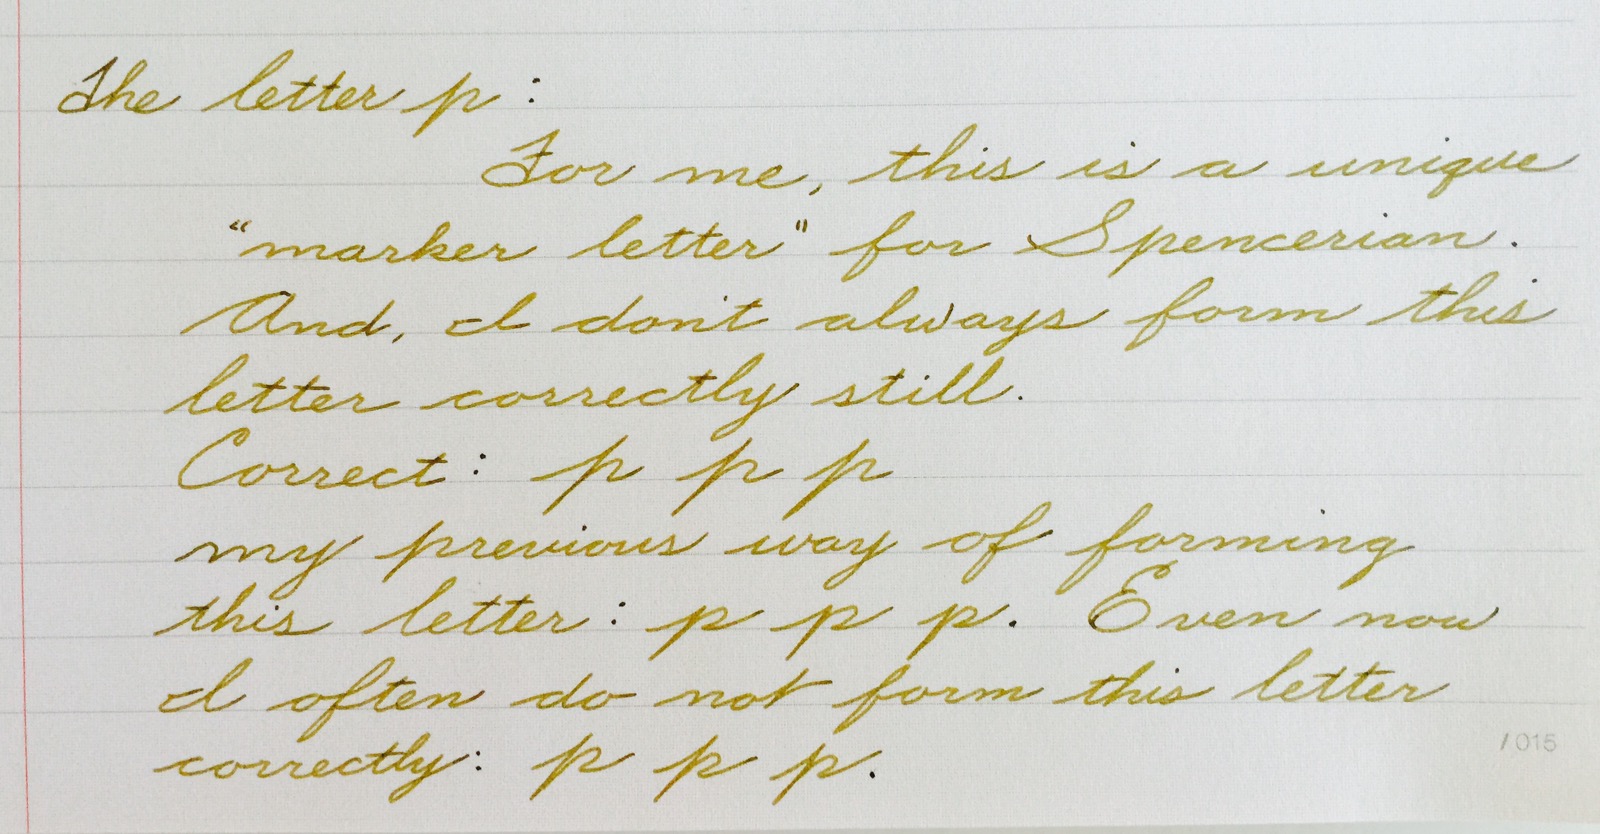 The letter p:
For me, this is a unique
“marker letter" for Spencerian.
And, I don't always form this
letter correctly still.
Correct: p p p
my previous way of forming
this letter: p p p. Even now
I often do not form this letter
correctly: p p p.
/015